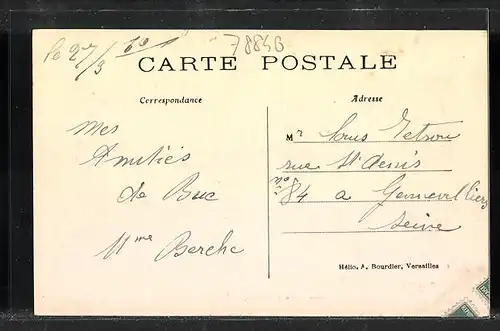 Le 27/3
78846
CARTE POSTALE
Correspondance
Adresse
Mes
Amitiés
de Buc
Mme Berche
Mr Louis
rue St denis
84 a Gennevilliers
Seine
Hélio, A. Bourdier, Versailles